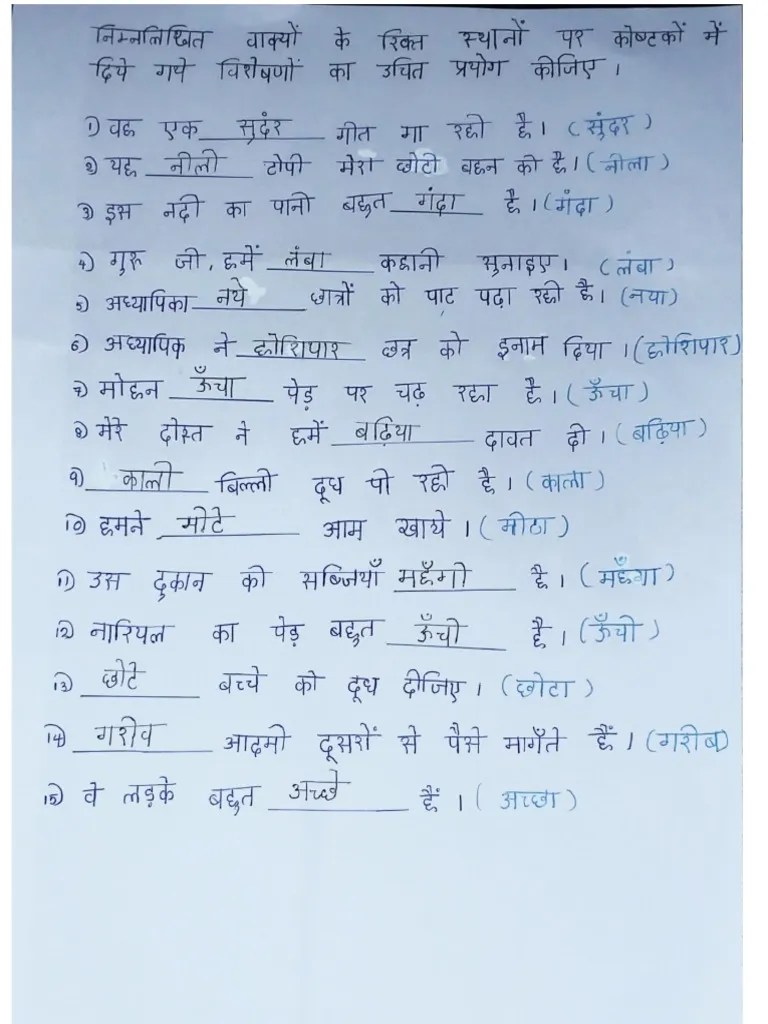 निम्नलिखित वाक्यों के रिक्त स्थानों पर कोष्टकों में
दिये गये विशेषणों का उचित प्रयोग कीजिए ।
1) वह एक सुदंर गीत गा रही है । (सुंदर)
2) यह नीली टोपी मेरा छोटी बहन की है । (नीला)
3) इस नदी का पानी बहुत गंदा है । (गंदा)
4) गुरु जी, हमें लंबा कहानी सुनाइए । (लंबा)
5) अध्यापिका नये छात्रों को पाट पढ़ा रही है । (नया)
6) अध्यापिक ने होशिपार छत्र को इनाम दिया । (होशिपार)
7) मोहन ऊँचा पेड़ पर चढ़ रहा है । (ऊँचा)
8) मेरे दोस्त ने हमें बढ़िया दावत दी । (बढ़िया)
9) काली बिल्ली दूध पी रही है । (काला)
10) हमने मीटे आम खाये । (मीठा)
11) उस दुकान की सब्जियाँ महँगी है । (महँगा)
12) नारियल का पेड़ बहुत ऊँची है । (ऊँची)
13) छोटे बच्चे को दूध दीजिए । (छोटा)
14) गरीव आदमी दूसरों से पैसे मागँते हैं । (गरीब)
15) वे लड़के बहुत अच्छे हैं । (अच्छा)